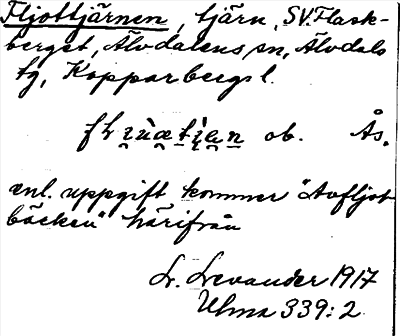 Fljottjärnen, tjärn, SV. Flask-
berget, Älvdalens sn, Älvdals
tg, Kopparbergs l.
ob. Ås.
enl. uppgift kommer "Avfljot
bäcken" härifrån
L. Levander 1917
Ulma 339:2.